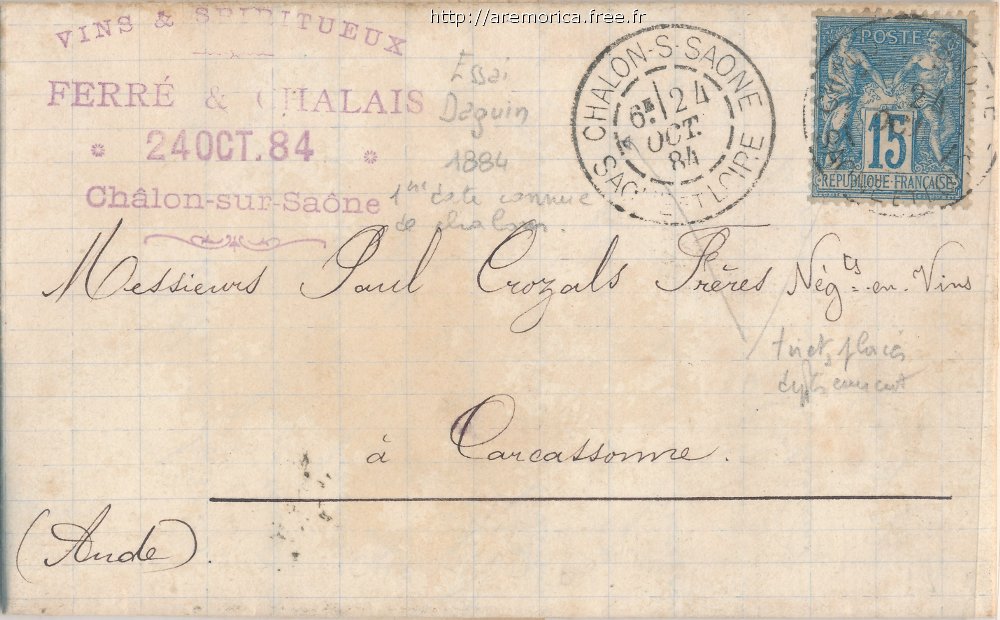 http://aremorica.free.fr
VINS & SPIRITUEUX
FERRÉ & CHALAIS
* 24 OCT. 84 *
Châlon-sur-Saône
Essai
Daguin
1884
1ère date connue
de chalon.
CHALON-S-SAONE
6E 24
OCT.
84
SAONE-ET-LOIRE
POSTE
24
15
REPUBLIQUE FRANÇAISE
Messieurs Paul Crozals Frères Négts-en-Vins
à Carcassonne.
(Aude).